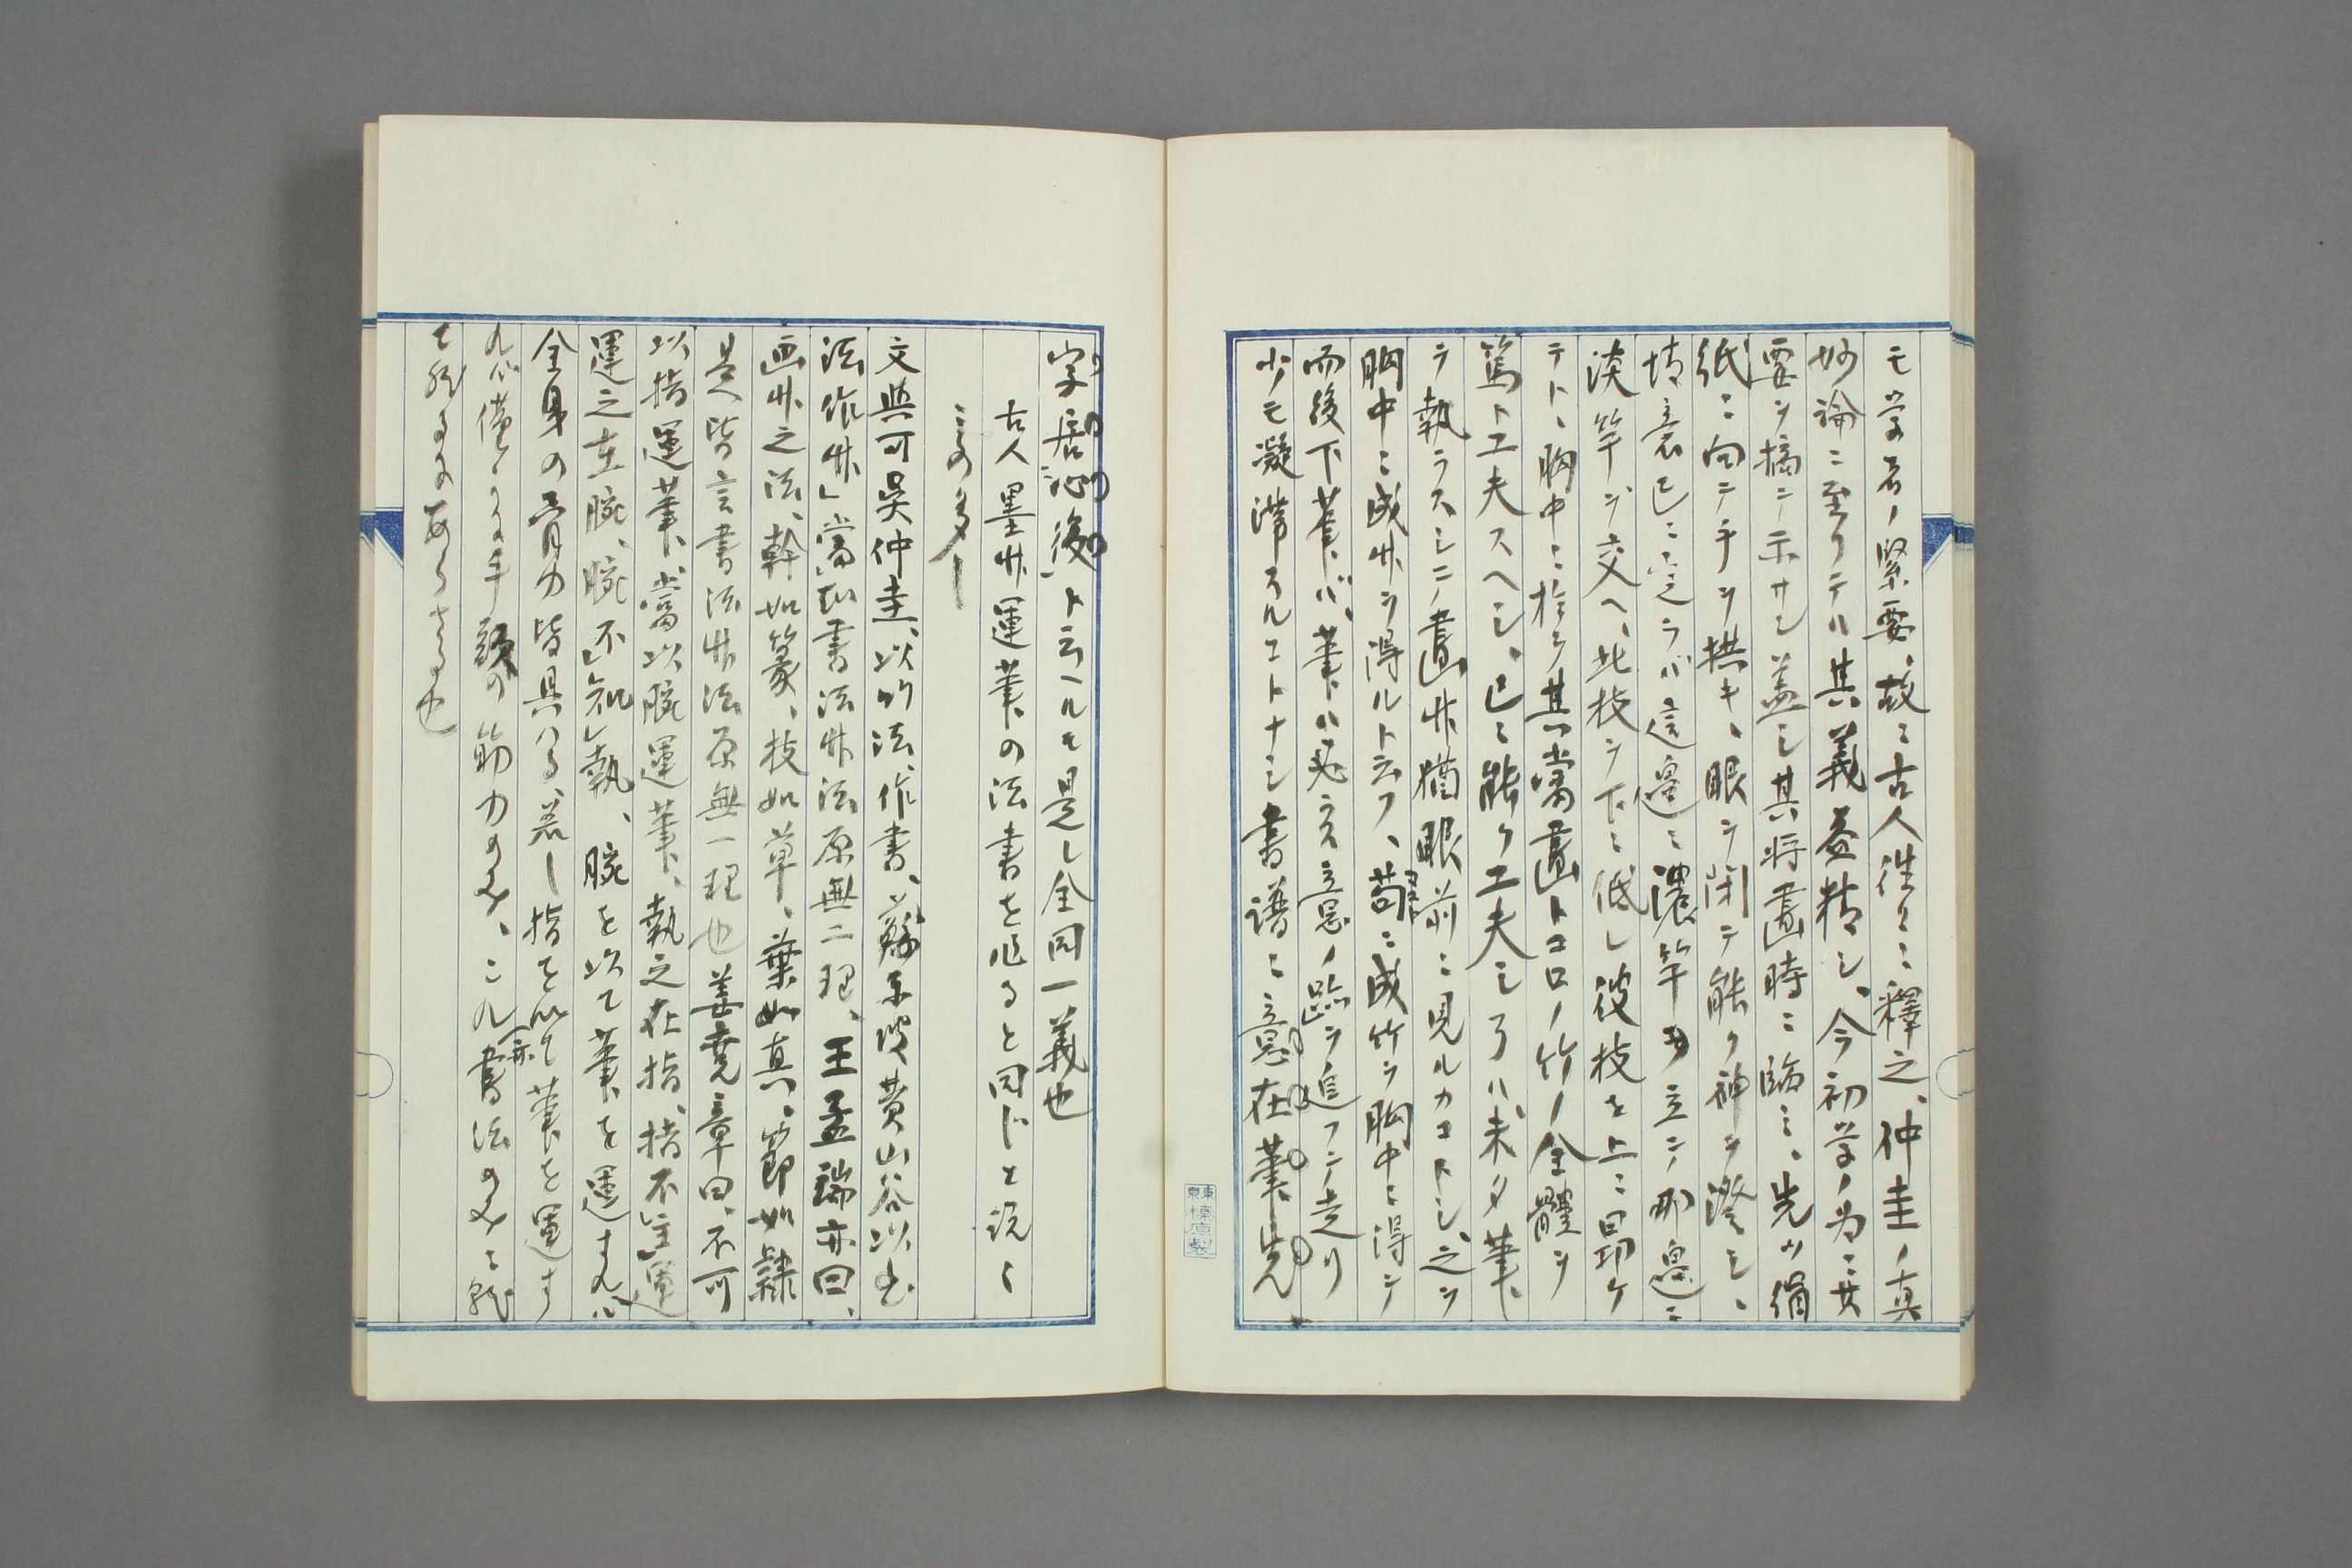 モ学者ノ緊要、故ニ古人往々ニ釋之、仲圭ノ真
妙論ニ至リテハ其義益精シ、今初学ノ為ニ其
要ヲ摘ンテ示サン蓋シ其将畫時ニ臨ミ、先ツ絹
紙ニ向テ手ヲ拱キ、眼ヲ閉テ能ク神ヲ澄シ、
意已ニ定ラバ這邊ニ濃竿ヲ立テ那邊ニ
淡竿ヲ交ヘ、此枝ヲ下ニ低レ彼枝を上ニ昂ケ
テト、胸中ニ於テ其當畫トコロノ竹ノ全體ヲ
篤ト工夫スヘシ、已ニ能ク工夫シ了ハ未タ筆
ヲ執ラスシテ畫竹猶眼前ニ見ルカコトシ、之ヲ
胸中ニ成竹ヲ得ルト云フ、苟ニ成竹ヲ胸中ニ得テ
而後下筆バ、筆ハ必ラス意ノ跡ヲ追フテ走リ
少モ凝滞スルコトナシ書譜ニ意在筆先
字居沁後ト云ヘルモ是レ全同一義也
古人墨竹運筆の法書を作ると同じと説く
もの多し
文與可吳仲圭、以竹法、作書、蘇東坡黄山谷以書
法作竹、當知書法竹法原無二理、王孟端亦曰、
画竹之法、幹如篆、枝如草、葉如真、節如隸
是皆言書法竹法原無二理也姜堯章曰、不可
以指運筆、當以腕運筆、執之在指、指不主運
運之在腕、腕不知執、腕を以て筆を運すれバ
全身の骨力皆具ハる、若し指を以て筆を運す
れバ僅々たる手頭の筋力のみ、これ書法のみ然
て然るにあらさる也
東京榛原製